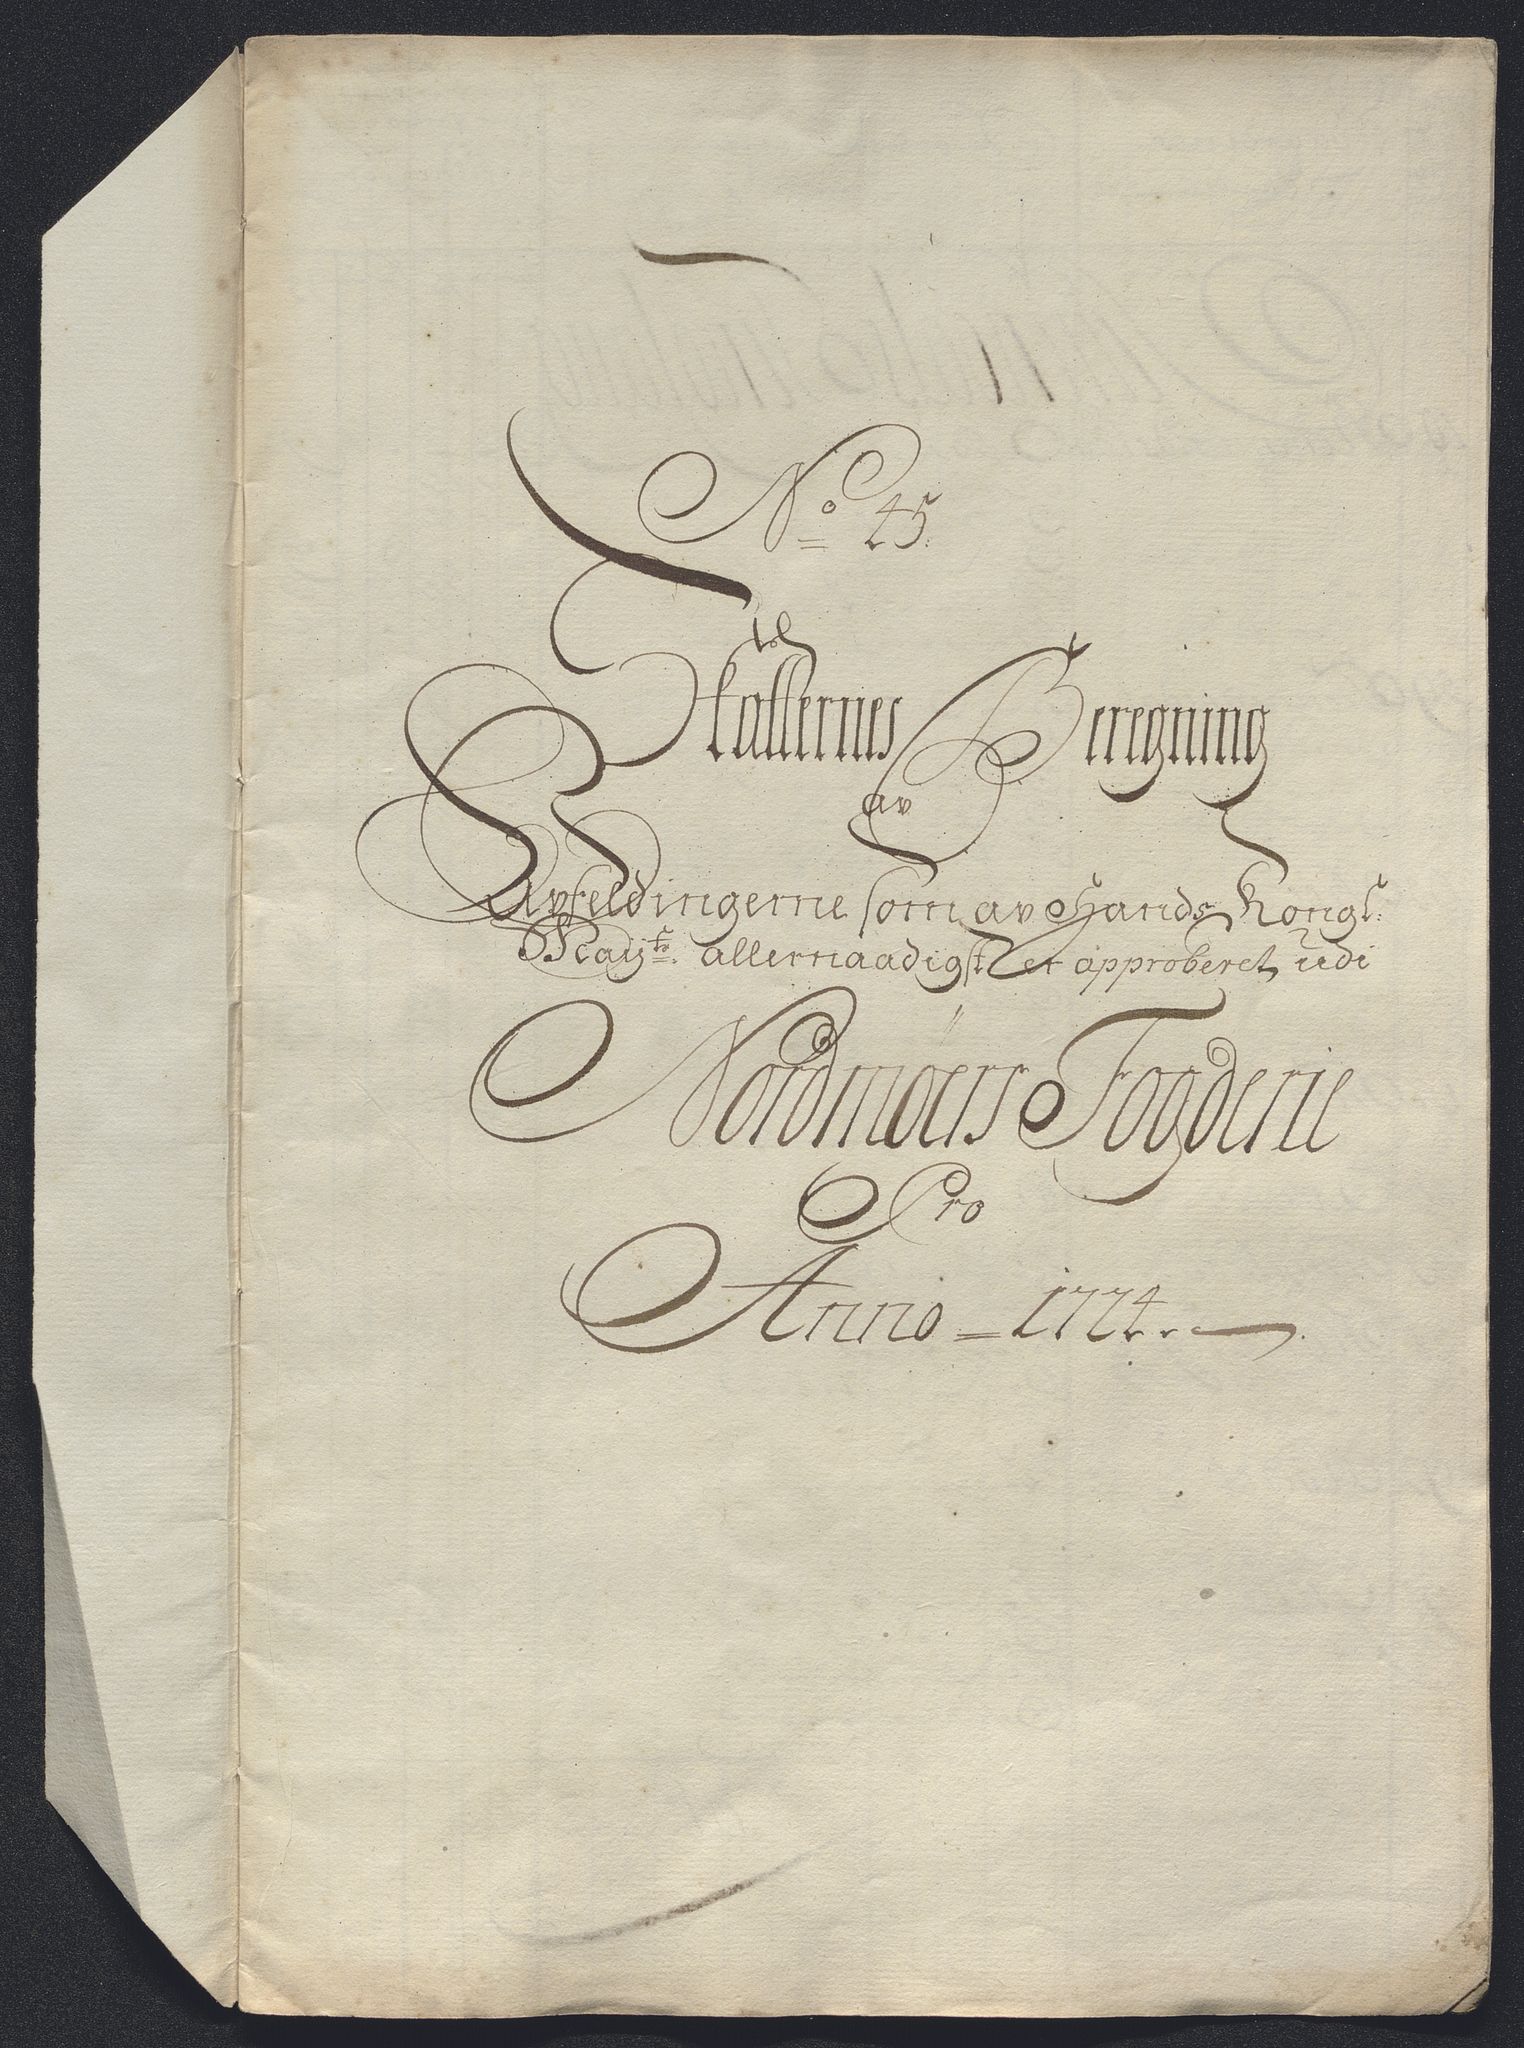 No 45.
Skatternes Beregning
av
Avfeldingerne som av Hands Kongl:
Mayts: allernaadigst er approberet udi
Nordmøers Fogderie
Pro
Anno = 1714.